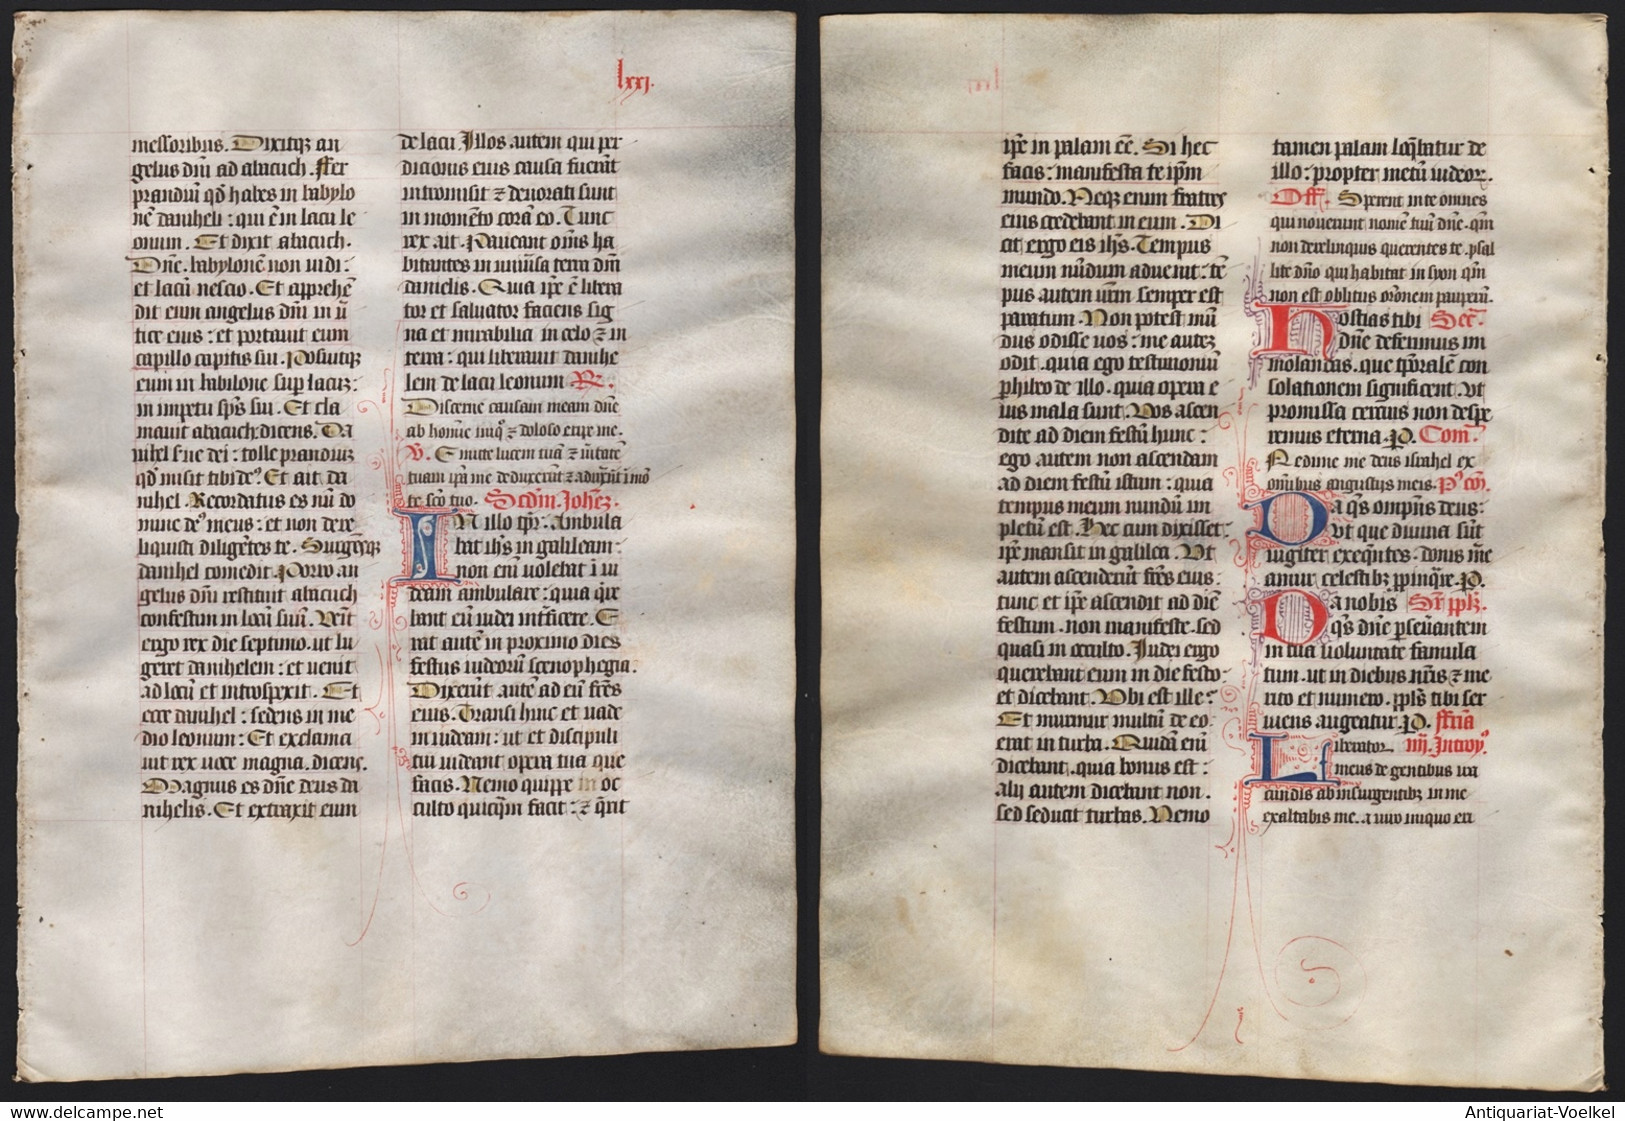 lxxi.
messoribus. Dixitqꝫ an
gelus dñi ad abacuch. ffer
prandiū qđ habes in babylo
nē daniheli : qui ē in lacu le
onum. Et dixit abacuch.
Dñe. babylonē non uidi :
et lacū nescio. Et apprehē
dit eum angelus dñi in ū
tice eius : et portauit eum
capillo capitis sui. Posuitqꝫ
eum in babilone sup̄ lacuꝫ :
in impetu sp̄s sui. Et cla
mauit abacuch : dicens. Da
nihel s̄ue dei : tolle prandiuꝫ
qđ misit tibi deꝰ. Et ait da
nihel. Recordatus es mī do
mine deꝰ meus : et non dere
liquisti diligētes te. Surgēsqꝫ
danihel comedit. Porro an
gelus dñi restituit abacuch
confestim in locū suū. Uenit
ergo rex die septimo. ut lu
geret danihelem : et uenit
ad locū et introspexit. Et
ecce danihel : sedens in me
dio leonum : Et exclama
uit rex uoce magna. dicens.
Magnus es dñe deus da
nihelis. Et extraxit eum
de lacu. Illos autem qui per
dicionis eius causa fuer̄t
intromisit ⁊ deuorati sunt
in momēto corā eo. Tunc
rex ait. Paueant om̄s ha
bitantes in uniūsa terra dm̄
danielis. Quia ip̄e ē libera
tor et saluator faciens sig
na et mirabilia in celo ⁊ in
terra : qui liberauit danihe
lem de lacu leonum R̄.
Discerne causam meam dñe
ab homīe iniqꝰ ⁊ doloso eripe me.
V. Emitte lucem tuā ⁊ ūitatē
tuam ip̄a me deduxer̄t ⁊ aduxer̄t ī mō
te scō tuo. Scdm̄. Johēꝫ.
IN illo tp̄r̄. Ambula
bat ih̄s in galileam :
non enī uolebat ī iu
deam ambulare : quia q̄re
bant eū iudei int̄ficere. E
rat autē in proximo dies
festus iudeorū scenophegia.
Dixer̄t autē ad eū fr̄es
eius. Transi hinc et uade
in iudeam : ut et discipuli
tui uideant opera tua que
facis. Nemo quippe in oc
culto quicq̄m facit : ⁊ q̄rit
ip̄e in palam eē. Si hec
facis : manifesta te ip̄m
mundo. Neqꝫ enim fratres
eius credebant in eum. Di
cit ergo eis ih̄s. Tempus
meum nūdum aduenit : tē
pus autem ur̄m semper est
paratum. Non potest mū
dus odisse uos : me auteꝫ
odit. quia ego testimoniū
phibeo de illo. quia opera e
ius mala sunt. Uos ascen
dite ad diem festū hunc :
ego autem non ascendam
ad diem festū istum : quia
tempus meum nundū im
pletū est. Hec cum dixisset :
ip̄e mansit in galilea. Ut
autem ascender̄t fr̄es eius :
tunc et ip̄e ascendit ad diē
festum. non manifeste. sed
quasi in occulto. Iudei ergo
querebant eum in die festo :
et dicebant. Ubi est ille?
Et murmur multū de eo.
erat in turba. Quidā enī
dicebant. quia bonus est :
alij autem dicebant non.
sed seducit turbas. Nemo
tamen palam loq̄batur de
illo : propter metū iudeoꝝ.
Off. Sperent in te omnes
qui nouerunt nomē tuū dñe. qm̄
non derelinquis querentes te. psal
lite dño qui habitat in syon qm̄
non est oblitus or̄onem pauperū.
Hostias tibi Secr̄.
dñe deferimus im
molandas. que tp̄oralē con
solationem significent. Ut
promissa cercius non despe
remus eterna. P. Com̄.
Redime me deus israhel ex
om̄ibus angustys meis. Pꝰ cōn.
Da qs̄ omp̄ns deus :
ut que diuina sūt
iugiter exeq̄ntes. donis me
amur celestibꝫ ꝓpinq̄re. P.
Da nobis Sr̄ pplꝫ.
qs̄ dñe p̄seuātem
in tua uoluntate famula
tum. ut in diebus nr̄is ⁊ me
rito et numero. ppl̄s tibi ser
uiens augeatur. P. ffria
Liberator iiij. Introyꝰ
meus de gentibus ira
cundis ab insurgentibꝫ in me
exaltabis me. a uiro iniquo eri
Antiquariat-Voelkel
www.delcampe.net